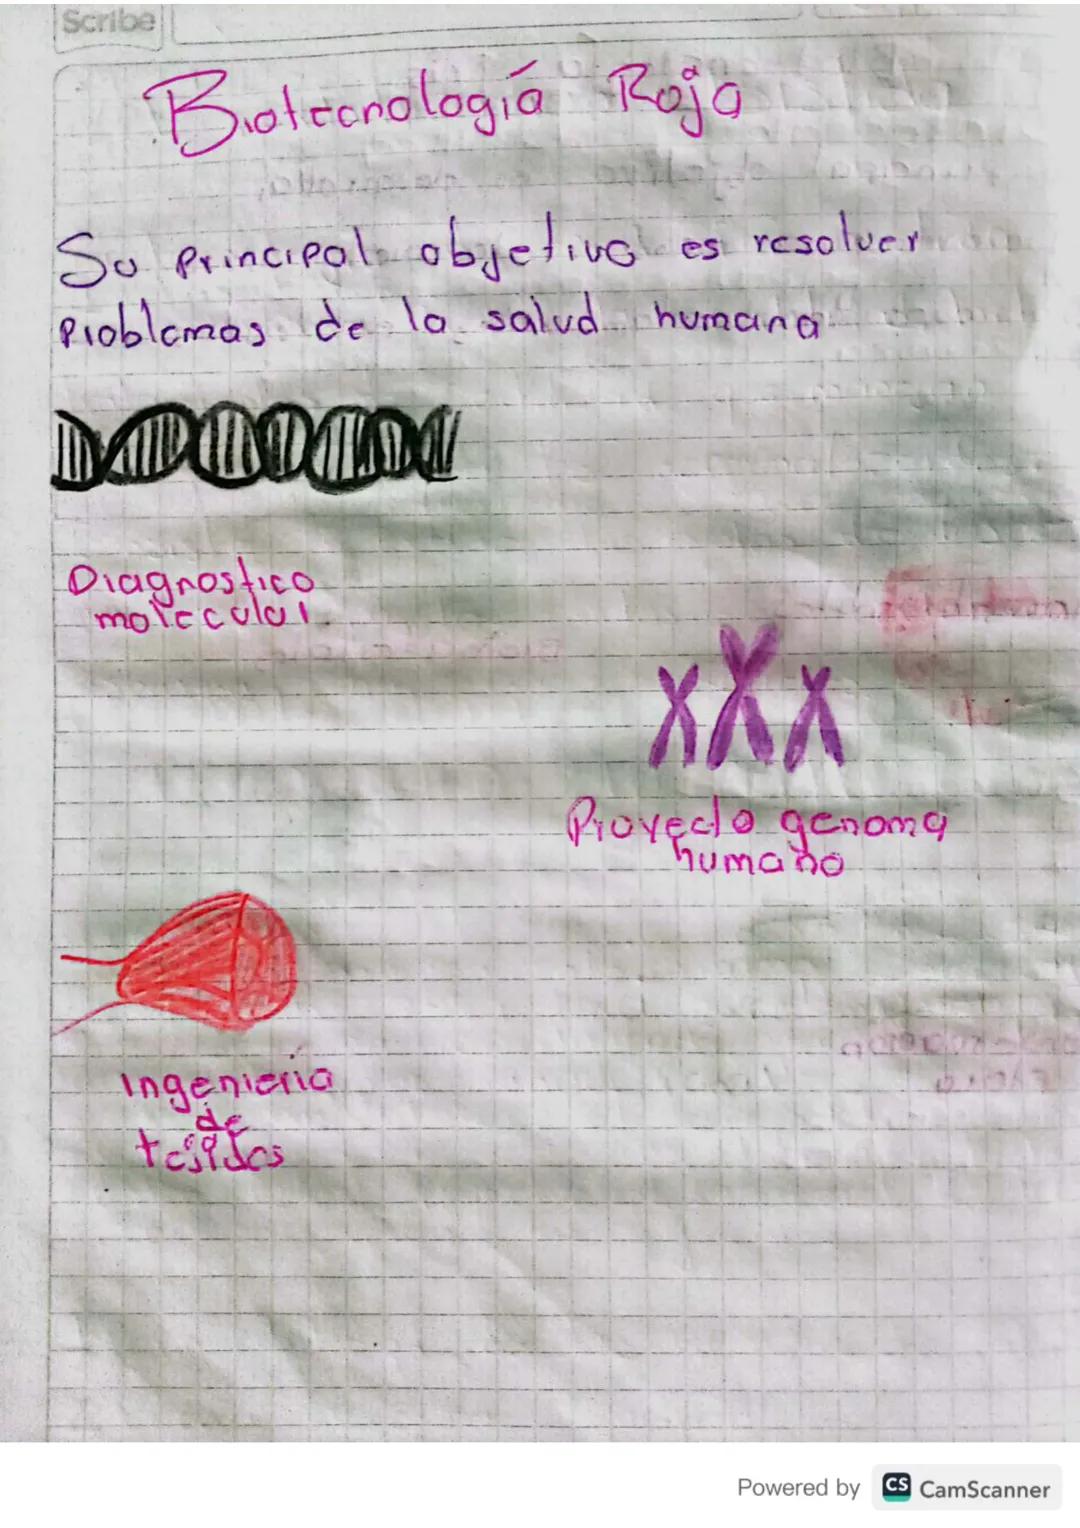 Scribe
Biotecnologiá Roja
Su principal objetivo es resolver
problemas de la salud humana
Diagnostico
molecular
Proyecto genoma
humano
Ingenieria
de
tejidos
Powered by CS CamScanner